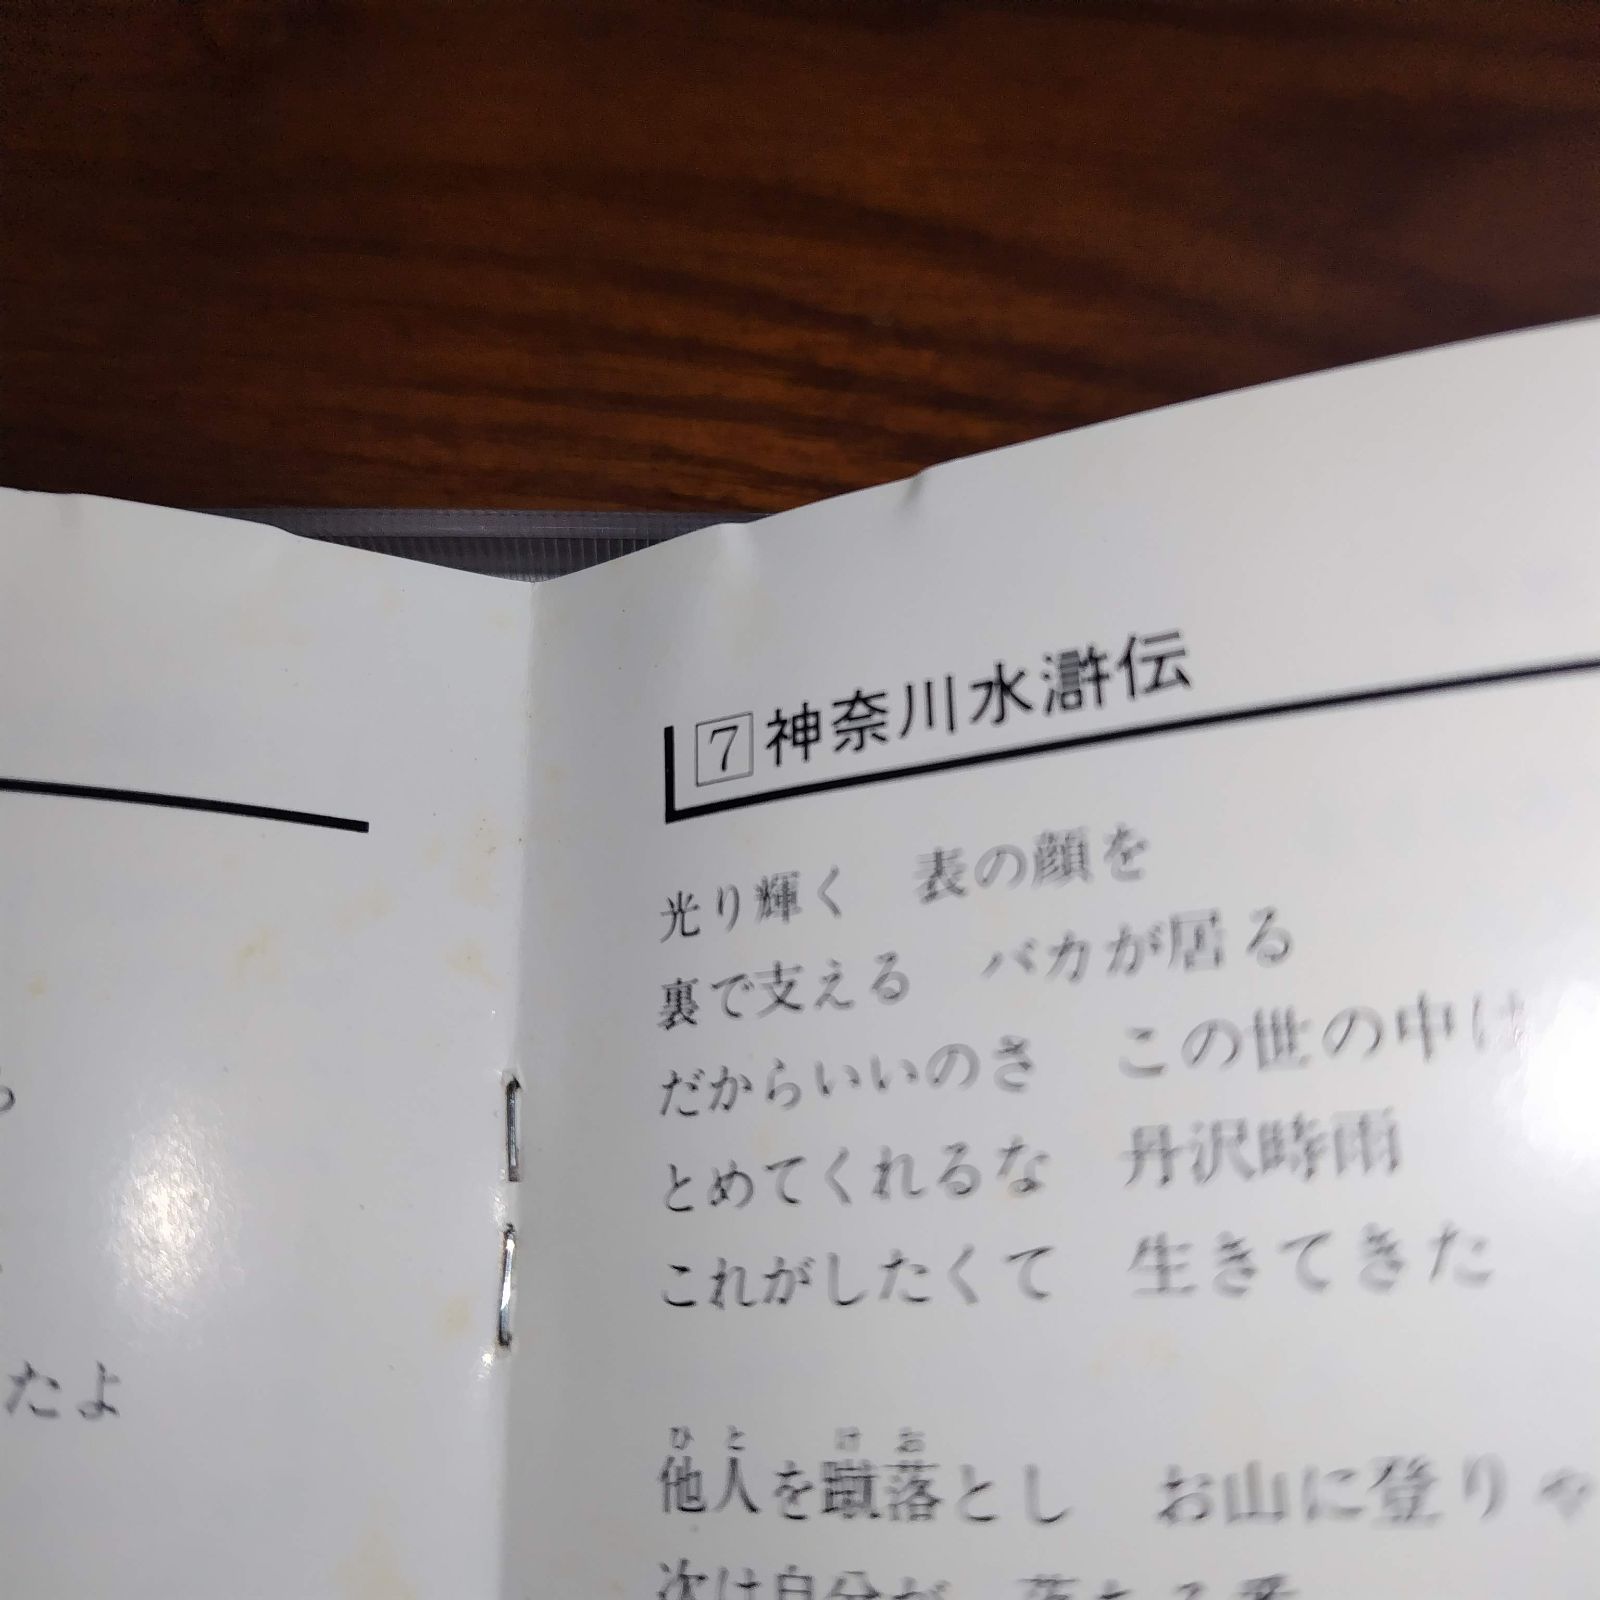 たよ
7 神奈川水滸伝
光り輝く 表の顔を
裏で支える バカが居る
だからいいのさ この世の中は
とめてくれるな 丹沢時雨
これがしたくて 生きてきた
ひと けお
他人を蹴落とし お山に登りゃ
次は自分が 落ちる番